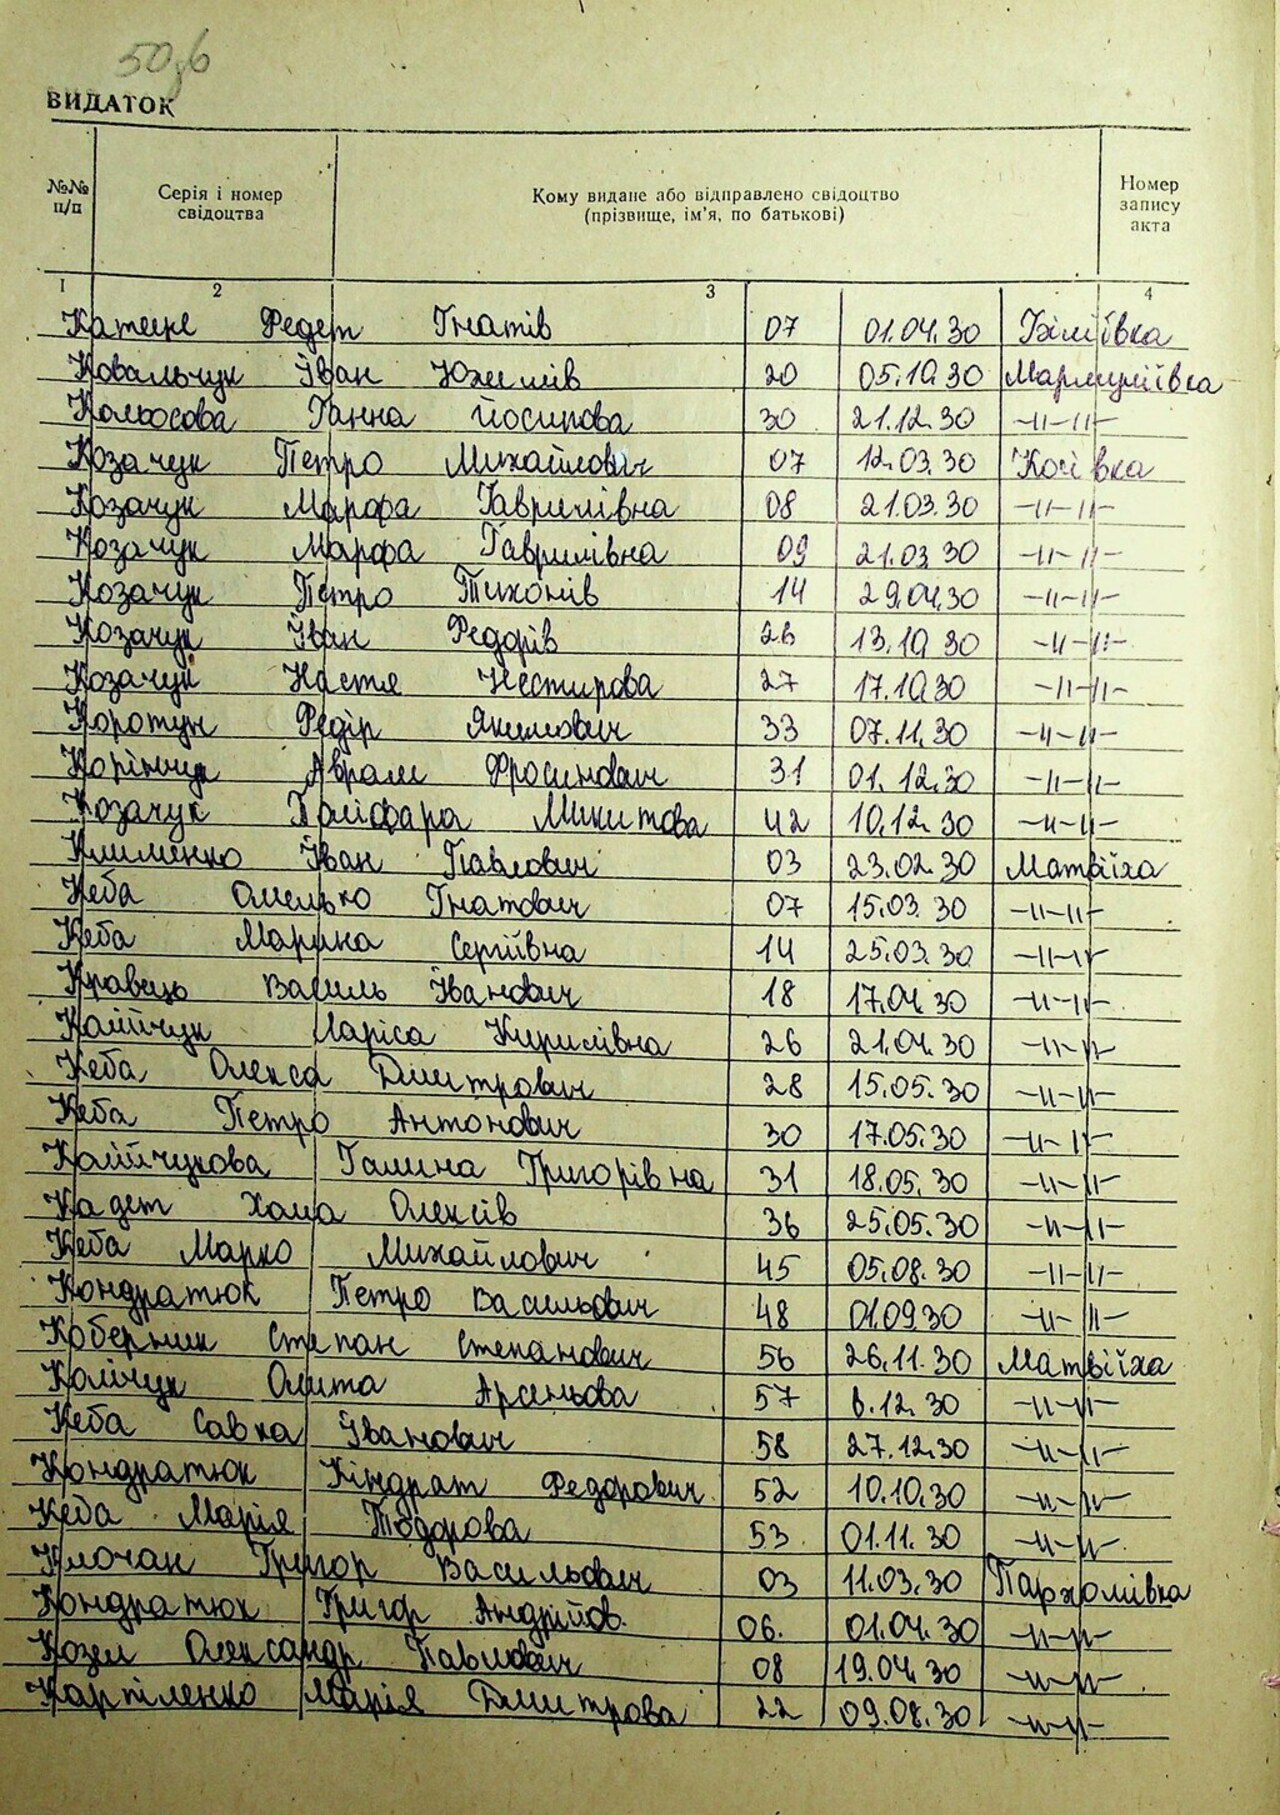 50зв
ВИДАТОК
№№ п/п
Серія і номер свідоцтва
Кому видане або відправлено свідоцтво (прізвище, ім'я, по батькові)
Номер запису акта
1 2 3 4
Федет Гнатів 07 01.04.30
Ковальчук Іван Юхимів 20 05.10.30
Кольосова Ганна Йосипова 30 21.12.30 -11-11-
Козачук Петро Михайлович 07 12.03.30 Косівка
Козачук Марфа Гаврилівна 08 21.03.30 -11-11-
Козачук Марфа Гаврилівна 09 21.03.30 -11-11-
Козачук Петро Тихонів 14 29.04.30 -11-11-
Козачук Іван Федорів 26 13.10.30 -11-11-
Козачук Настя Нестирова 27 17.10.30 -11-11-
Коротун Федір Якимович 33 07.11.30 -11-11-
Корінчук Аврам 31 01.12.30 -11-11-
Козачук Поліфара Микитова 42 10.12.30 -11-11-
Клименко Іван Павлович 03 23.02.30 Матвіїха
Кеба Омелько Гнатович 07 15.03.30 -11-11-
Кеба Марина Сергіївна 14 25.03.30 -11-11-
Кравець Василь Іванович 18 17.04.30 -11-11-
Койчук Лариса Кирилівна 26 21.04.30 -11-11-
Кеба Олекса Дмитрович 28 15.05.30 -11-11-
Кеба Петро Антонович 30 17.05.30 -11-11-
Галина Григорівна 31 18.05.30 -11-11-
Кадет Хома Олексів 36 25.05.30 -11-11-
Кеба Марко Михайлович 45 05.08.30 -11-11-
Кондратюк Петро Васильович 48 01.09.30 -11-11-
Коберник Степан Степанович 56 26.11.30 Матвіїха
Колічук Олита Арсеньова 57 6.12.30 -11-11-
Кеба Савка Іванович 58 27.12.30 -11-11-
Кондратюк Кіндрат Федорович 52 10.10.30 -11-11-
Кеба Марія Тодорова 53 01.11.30 -11-11-
Клочан Григор Васильович 03 11.03.30 Пархомівка
Кондратюк Григор Андрійов. 06. 01.04.30 -11-11-
Козел Олександр Павлович 08 19.04.30 -11-11-
Карпіленко Марія Дмитрова 22 09.08.30 -11-11-